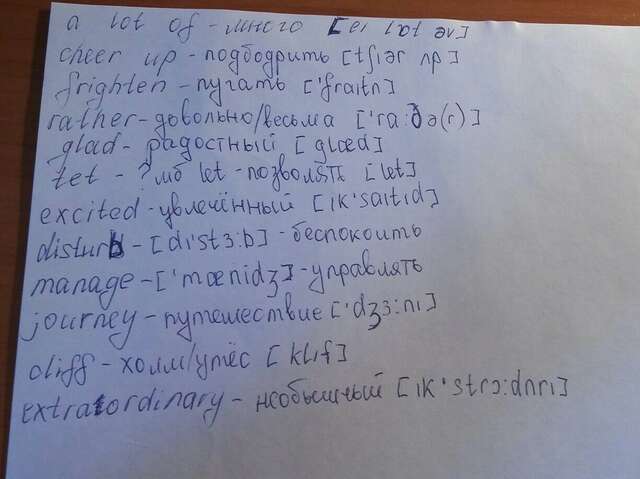 a lot of - много [eɪ lɒt əv]
cheer up - подбодрить [tʃıər ʌp]
frighten - пугать ['fraıtn]
rather - довольно/весьма ['rɑ:ðə(r)]
glad - радостный [glæd]
tet - ? мб let - позволять [let]
excited - увлечённый [ık'saıtıd]
disturb - [dı'stɜ:b] - беспокоить
manage - ['mænidʒ] - управлять
journey - путешествие ['dʒɜ:nı]
cliff - холм/утёс [klıf]
extraordinary - необычный [ık'strɔ:dnrı]